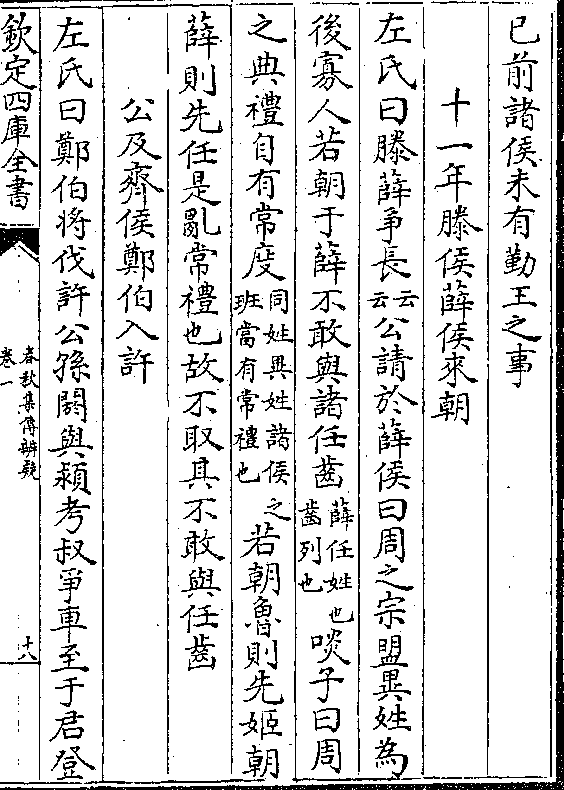 已前諸侯未有勤王之事
十一年滕侯薛侯來朝
左氏曰滕薛爭長云云公請於薛侯曰周之宗盟異姓為
後寡人若朝于薛不敢與諸任齒薛任姓也齒列也啖子曰周
之典禮自有常度同姓異姓諸侯之班當有常禮也若朝魯則先姬朝
薛則先任是亂常禮也故不取其不敢與任齒
公及齊侯鄭伯入許
左氏曰鄭伯將伐許公孫閼與潁考叔爭車至于君登
欽定四庫全書
春秋集傳辨疑
卷一
十八